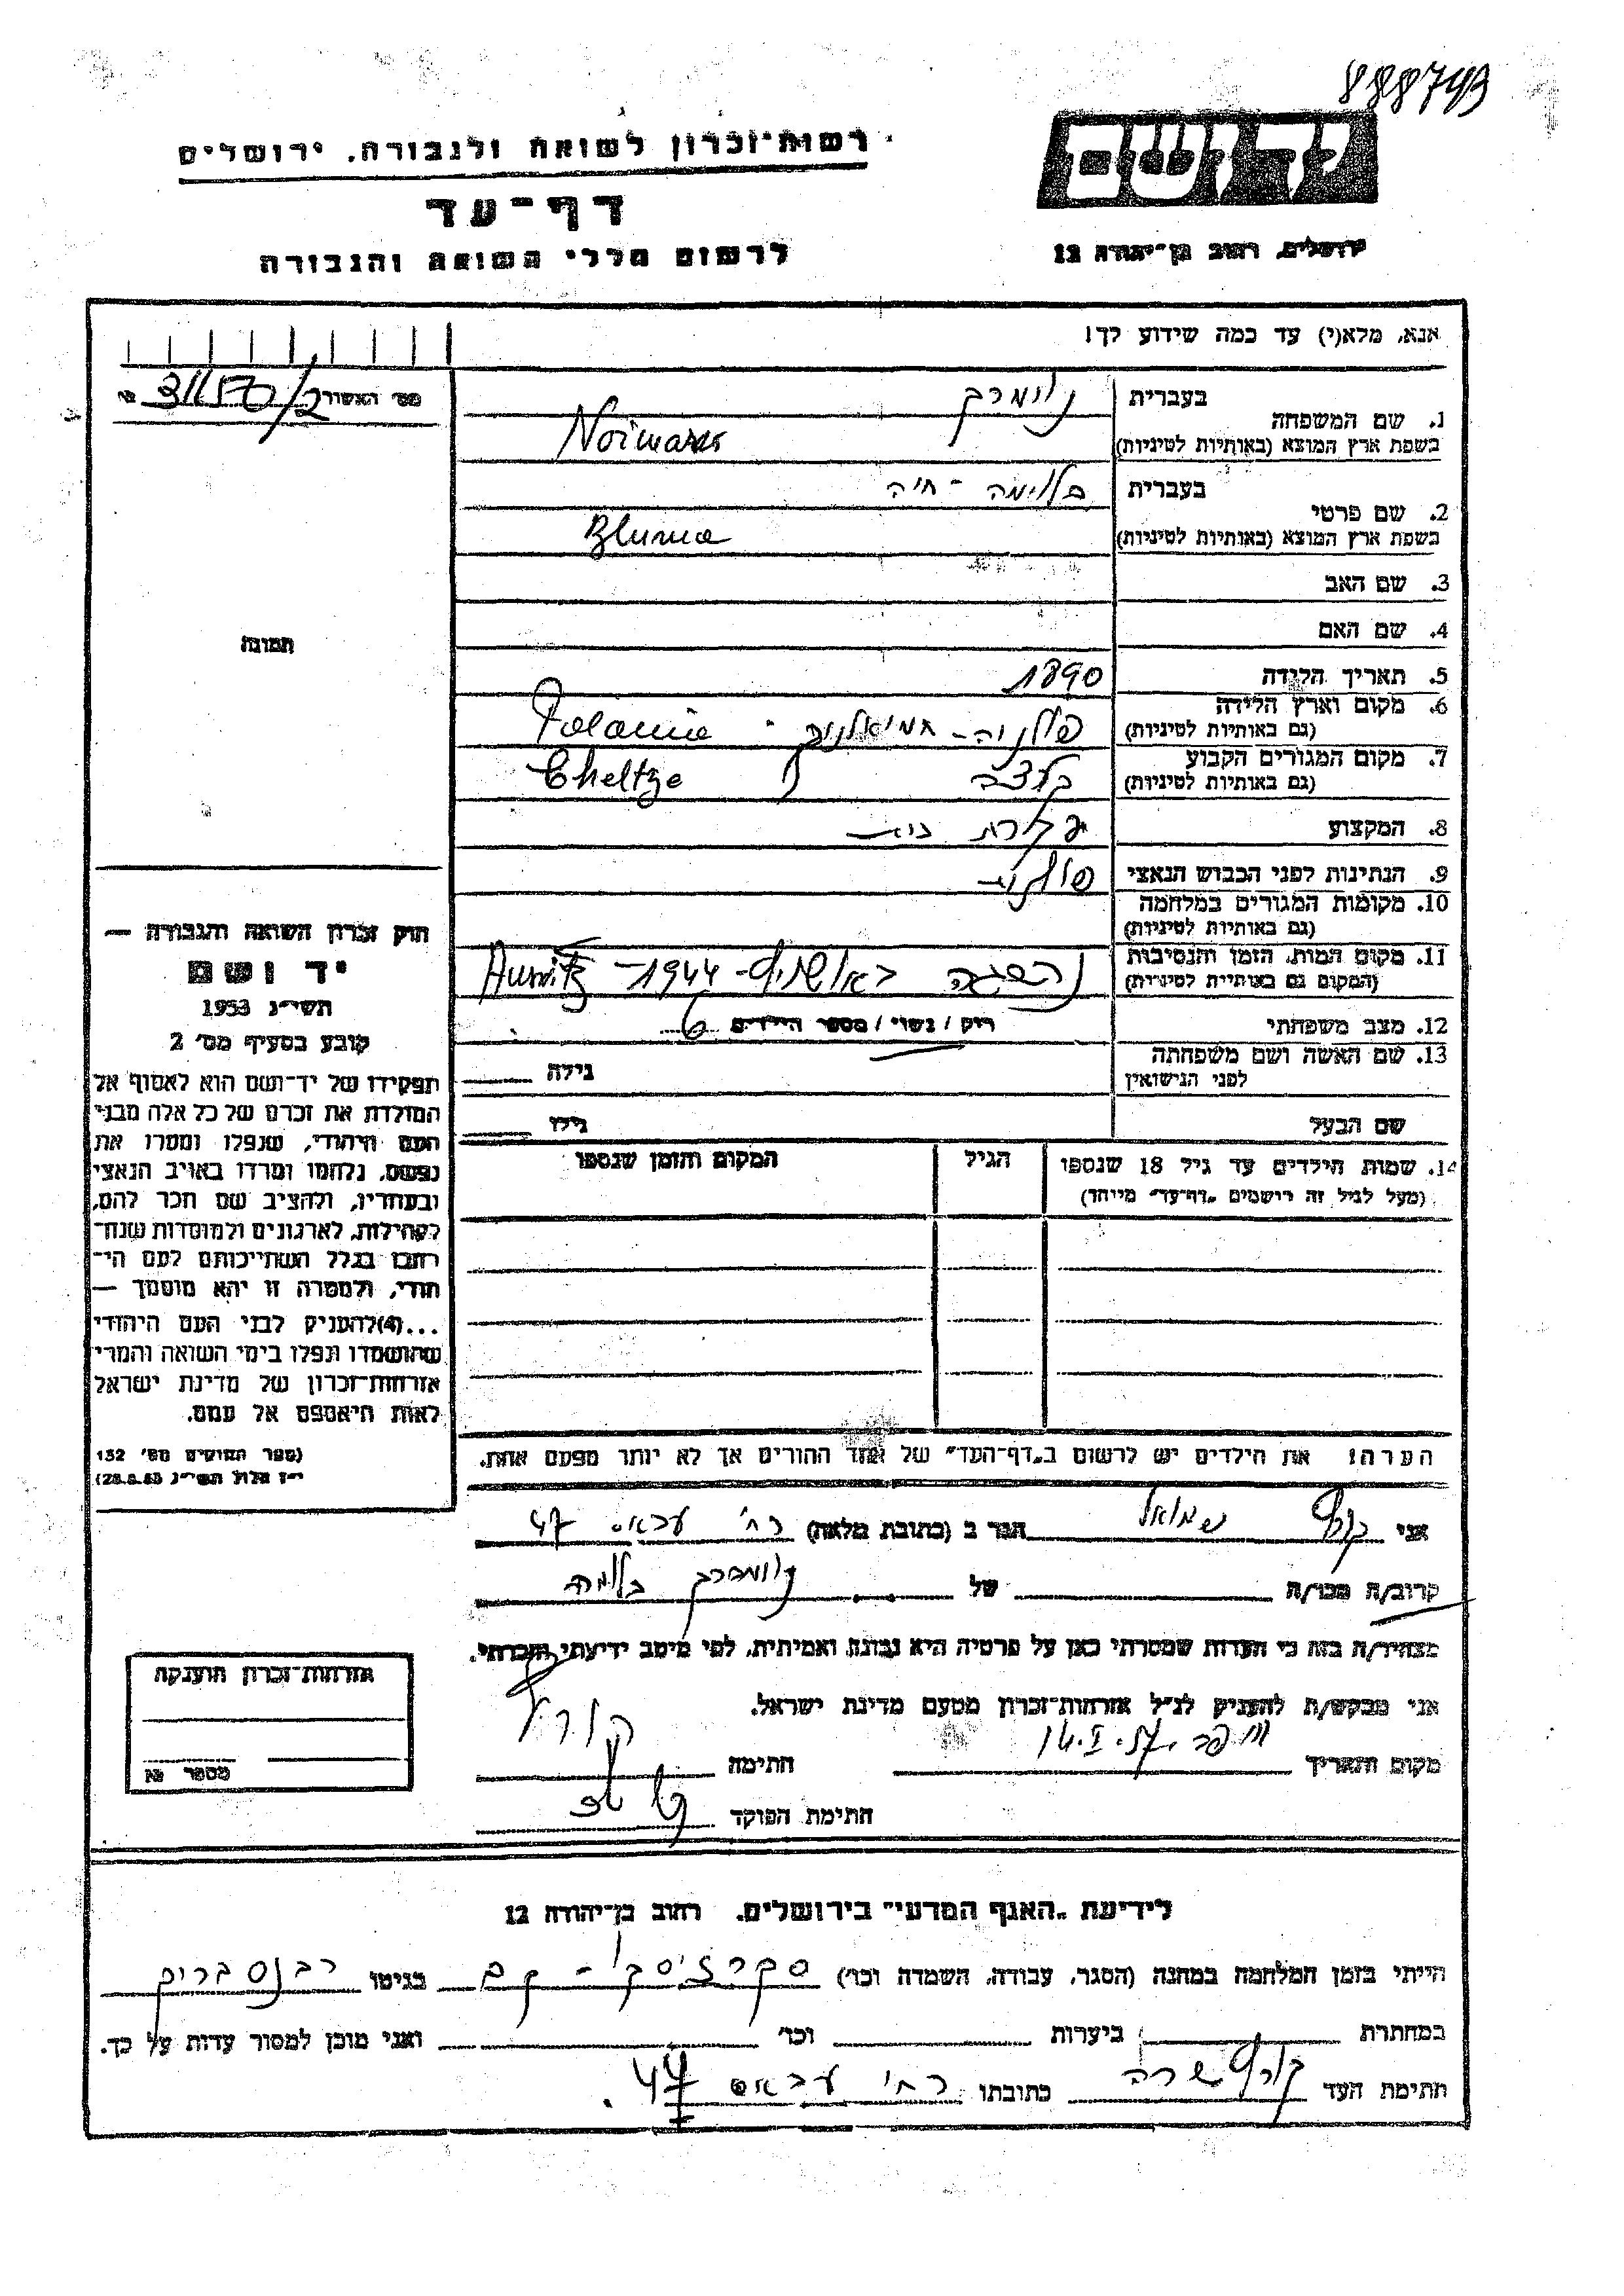 888793
רשות־זכרון לשואה ולגבורה, ירושלים
יד ושם
דף־עד
לרשום חללי השואה והגבורה
ירושלים, רחוב בן־יהודה 12
אנא, מלא(י) עד כמה שידוע לך!
מס׳ האשור 31170/2
1. שם המשפחה
בעברית
בשפת ארץ המוצא (באותיות לטיניות)
2. שם פרטי
בעברית בלומה - חיה
בשפת ארץ המוצא (באותיות לטיניות) Bluma
3. שם האב
4. שם האם
תמונה
5. תאריך הלידה 1890
6. מקום וארץ הלידה
(גם באותיות לטיניות) פולניה -
7. מקום המגורים הקבוע
(גם באותיות לטיניות) Cheltze
8. המקצוע עקרת בית
9. הנתינות לפני הכבוש הנאצי פולנית
10. מקומות המגורים במלחמה
(גם באותיות לטיניות)
11. מקום המות, הזמן והנסיבות
(המקום גם באותיות לטיניות) נהרגה באושויץ - 1944 -
12. מצב משפחתי רוק / נשוי / מספר הילדים 6
13. שם האשה ושם משפחתה
לפני הנישואין
גילה
שם הבעל גילו
14. שמות הילדים עד גיל 18 שנספו
(מעל לגיל זה רושמים „דף־עד״ מיוחד)
הגיל
המקום והזמן שנספו
חוק זכרון השואה והגבורה —
יד ושם
תשי״ג 1953
קובע בסעיף מס׳ 2
תפקידו של יד־ושם הוא לאסוף אל
המולדת את זכרם של כל אלה מבני
העם היהודי, שנפלו ומסרו את
נפשם, נלחמו ומרדו באויב הנאצי
ובעוזריו, ולהציב שם וזכר להם,
לקהילות, לארגונים ולמוסדות שנח־
רבו בגלל השתייכותם לעם הי־
הודי, ולמטרה זו יהא מוסמך —
...(4) להעניק לבני העם היהודי
שהושמדו ונפלו בימי השואה והמרי
אזרחות־זכרון של מדינת ישראל
לאות היאספם אל עמם.
(ספר החוקים מס׳ 132
י״ז אלול תשי״ג (28.8.53
הערה! את הילדים יש לרשום ב„דף־העד״ של אחד ההורים אך לא יותר מפעם אחת.
אני שמואל הגר ב (כתובת מלאה) רח׳ עבאס 47
קרוב/ה מכר/ה של בלומה
מצהיר/ה בזה כי העדות שמסרתי כאן על פרטיה היא נכונה ואמיתית, לפי מיטב ידיעתי והכרתי.
אני מבקש/ת להעניק לנ״ל אזרחות־זכרון מטעם מדינת ישראל.
מקום ותאריך חתימה
חתימת הפוקד
אזרחות־זכרון הוענקה
מספר
לידיעת „האגף המדעי״ בירושלים, רחוב בן־יהודה 12
הייתי בזמן המלחמה במחנה (הסגר, עבודה, השמדה וכו׳) בגיטו רבנסברוק
במחתרת ביערות וכו׳ ואני מוכן למסור עדות על כך.
חתימת העד שרה כתובתו רח׳ עבאס 47.